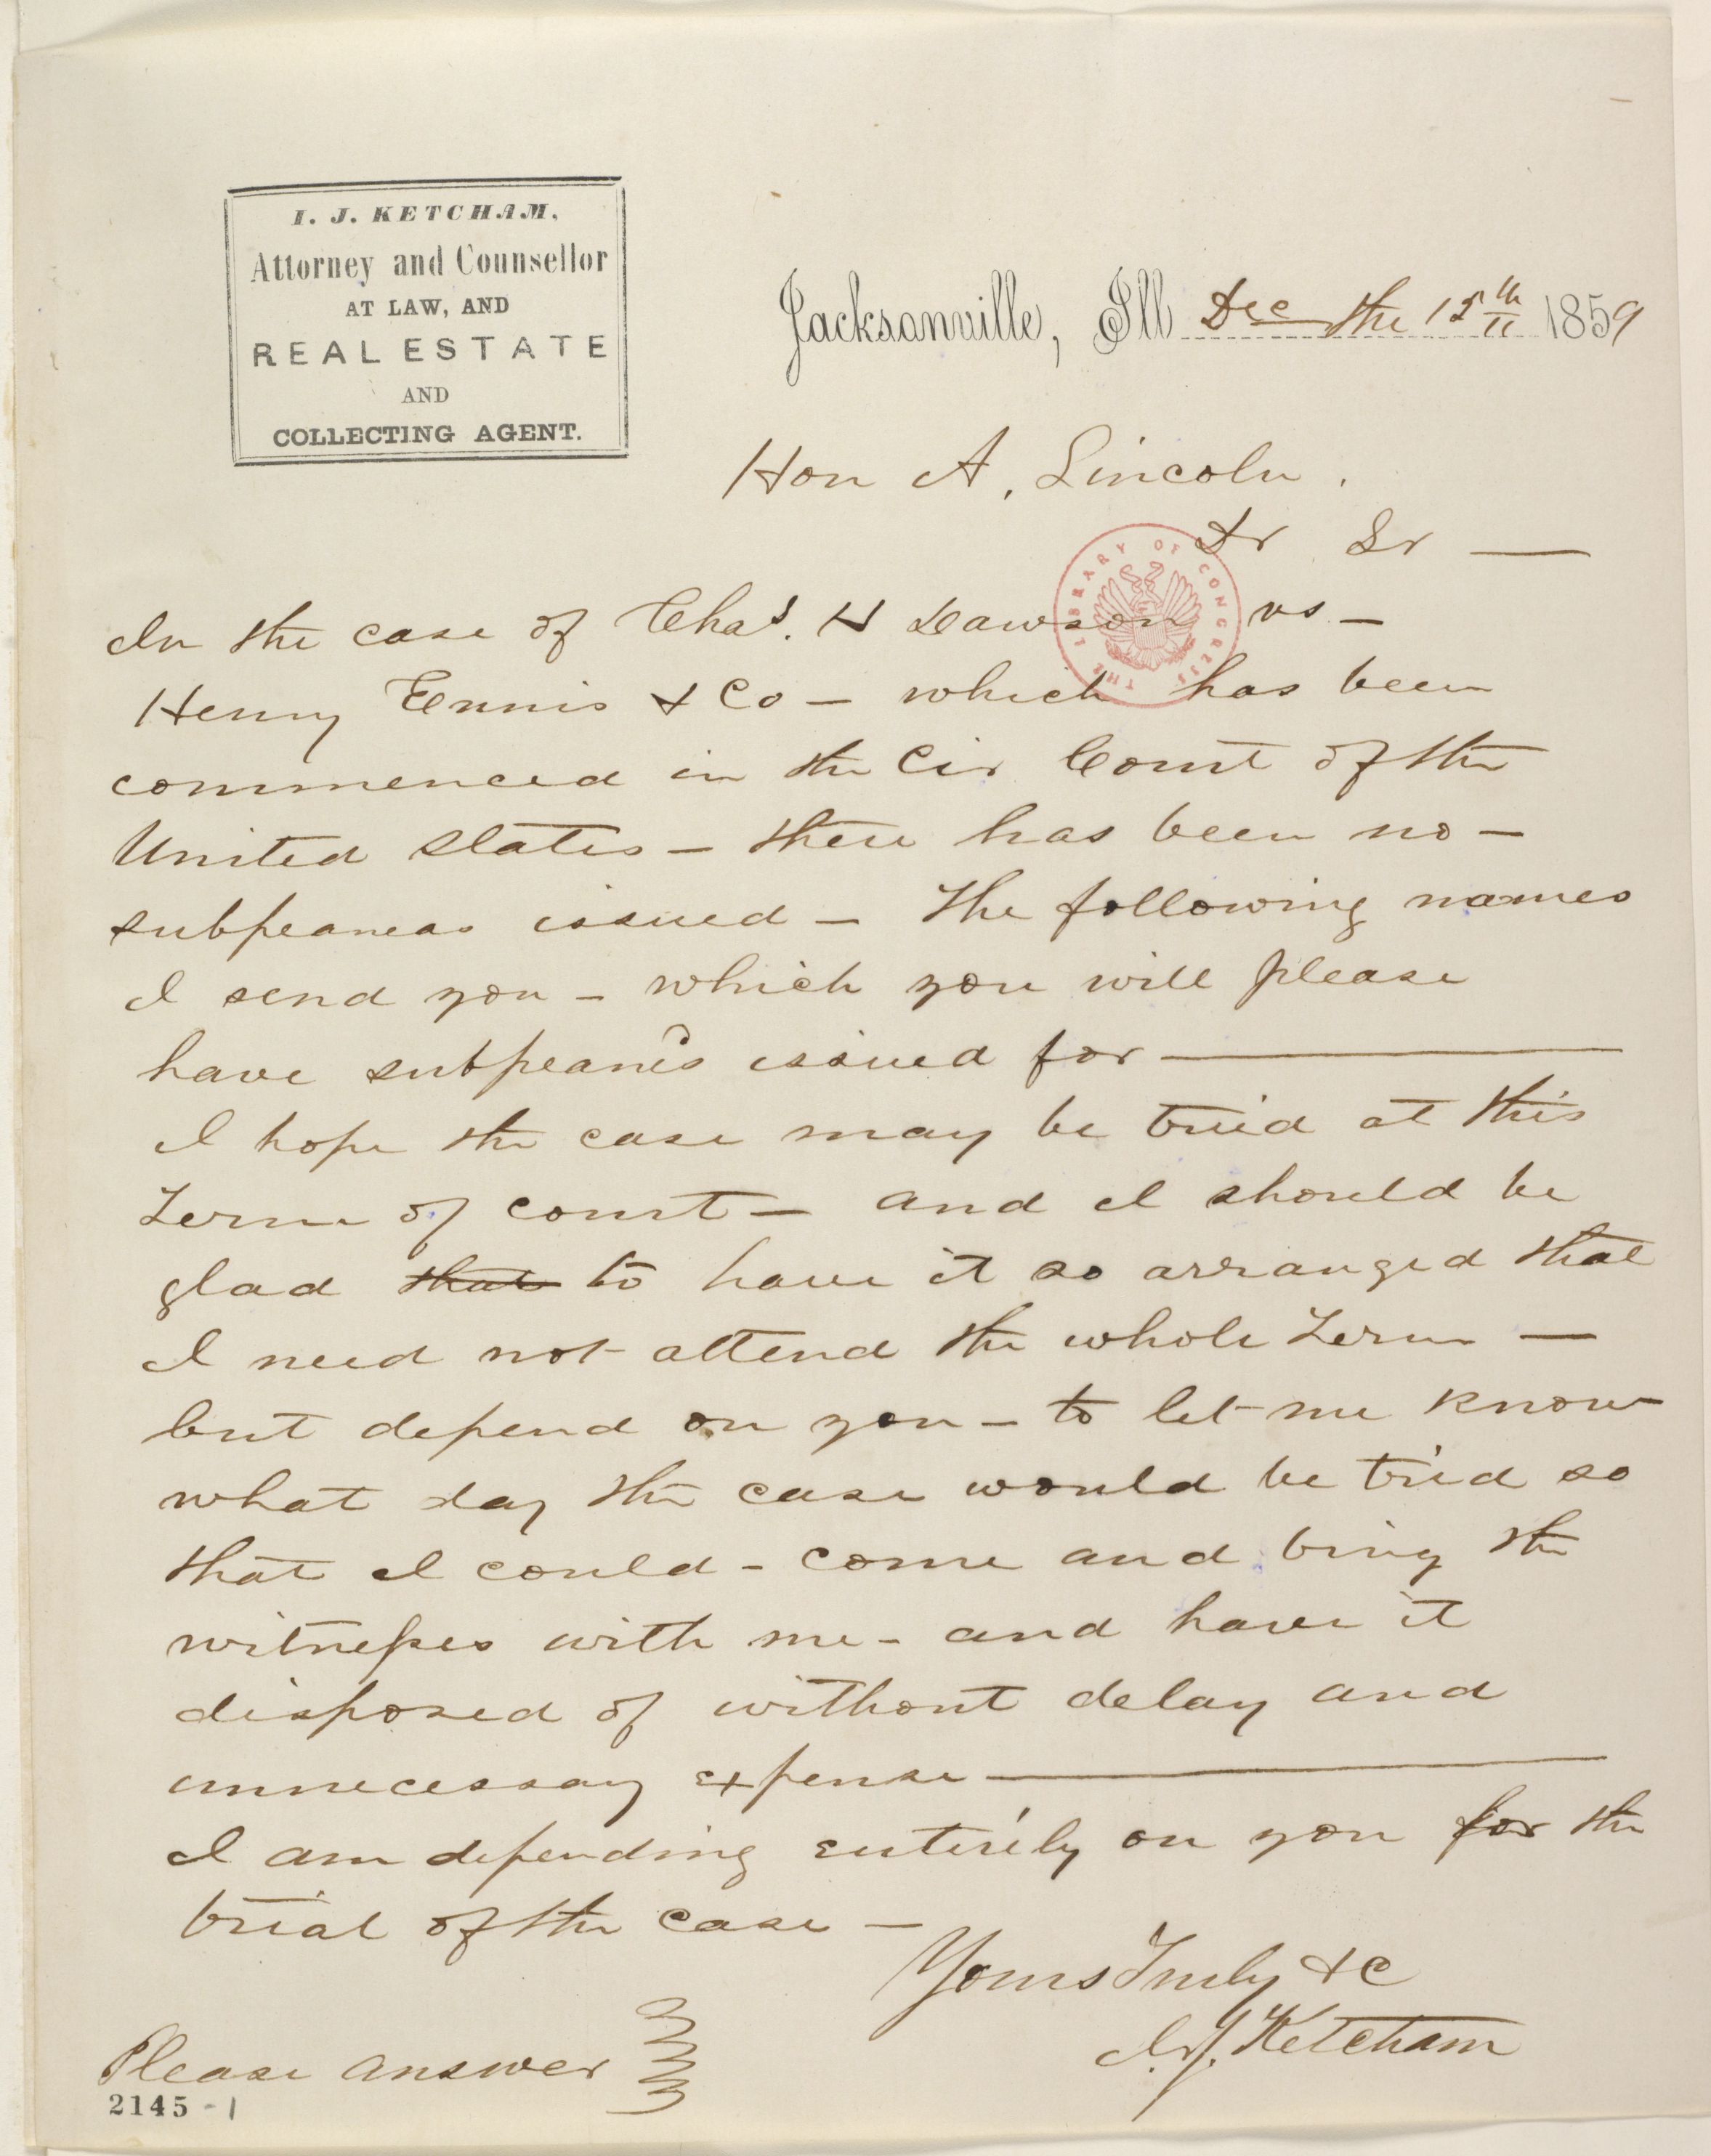 I. J. KETCHAM,
Attorney and Counsellor
AT LAW, AND
REAL ESTATE
AND
COLLECTING AGENT.
Jacksonville, Ill Dec the 15th 1859
Hon A. Lincoln.
Dr Sr —
In the case of Chas. H Dawson vs —
Henry Ennis & Co — which has been
commenced in the Cir Court of the
United States — there has been no —
subpeaneas issued — The following names
I send you — which you will please
have subpeanes issued for —
I hope the case may be tried at this
Term of court — and I should be
glad that to have it so arranged that
I need not attend the whole Term —
but depend on you — to let me know
what day the case would be tried so
that I could — come and bring the
witnesses with me — and have it
disposed of without delay and
unnecessay expense —
I am depending entirely on you for the
trial of the case —
Yours Truly &C
I. J. Ketcham
Please answer
2145-1
THE LIBRARY OF CONGRESS